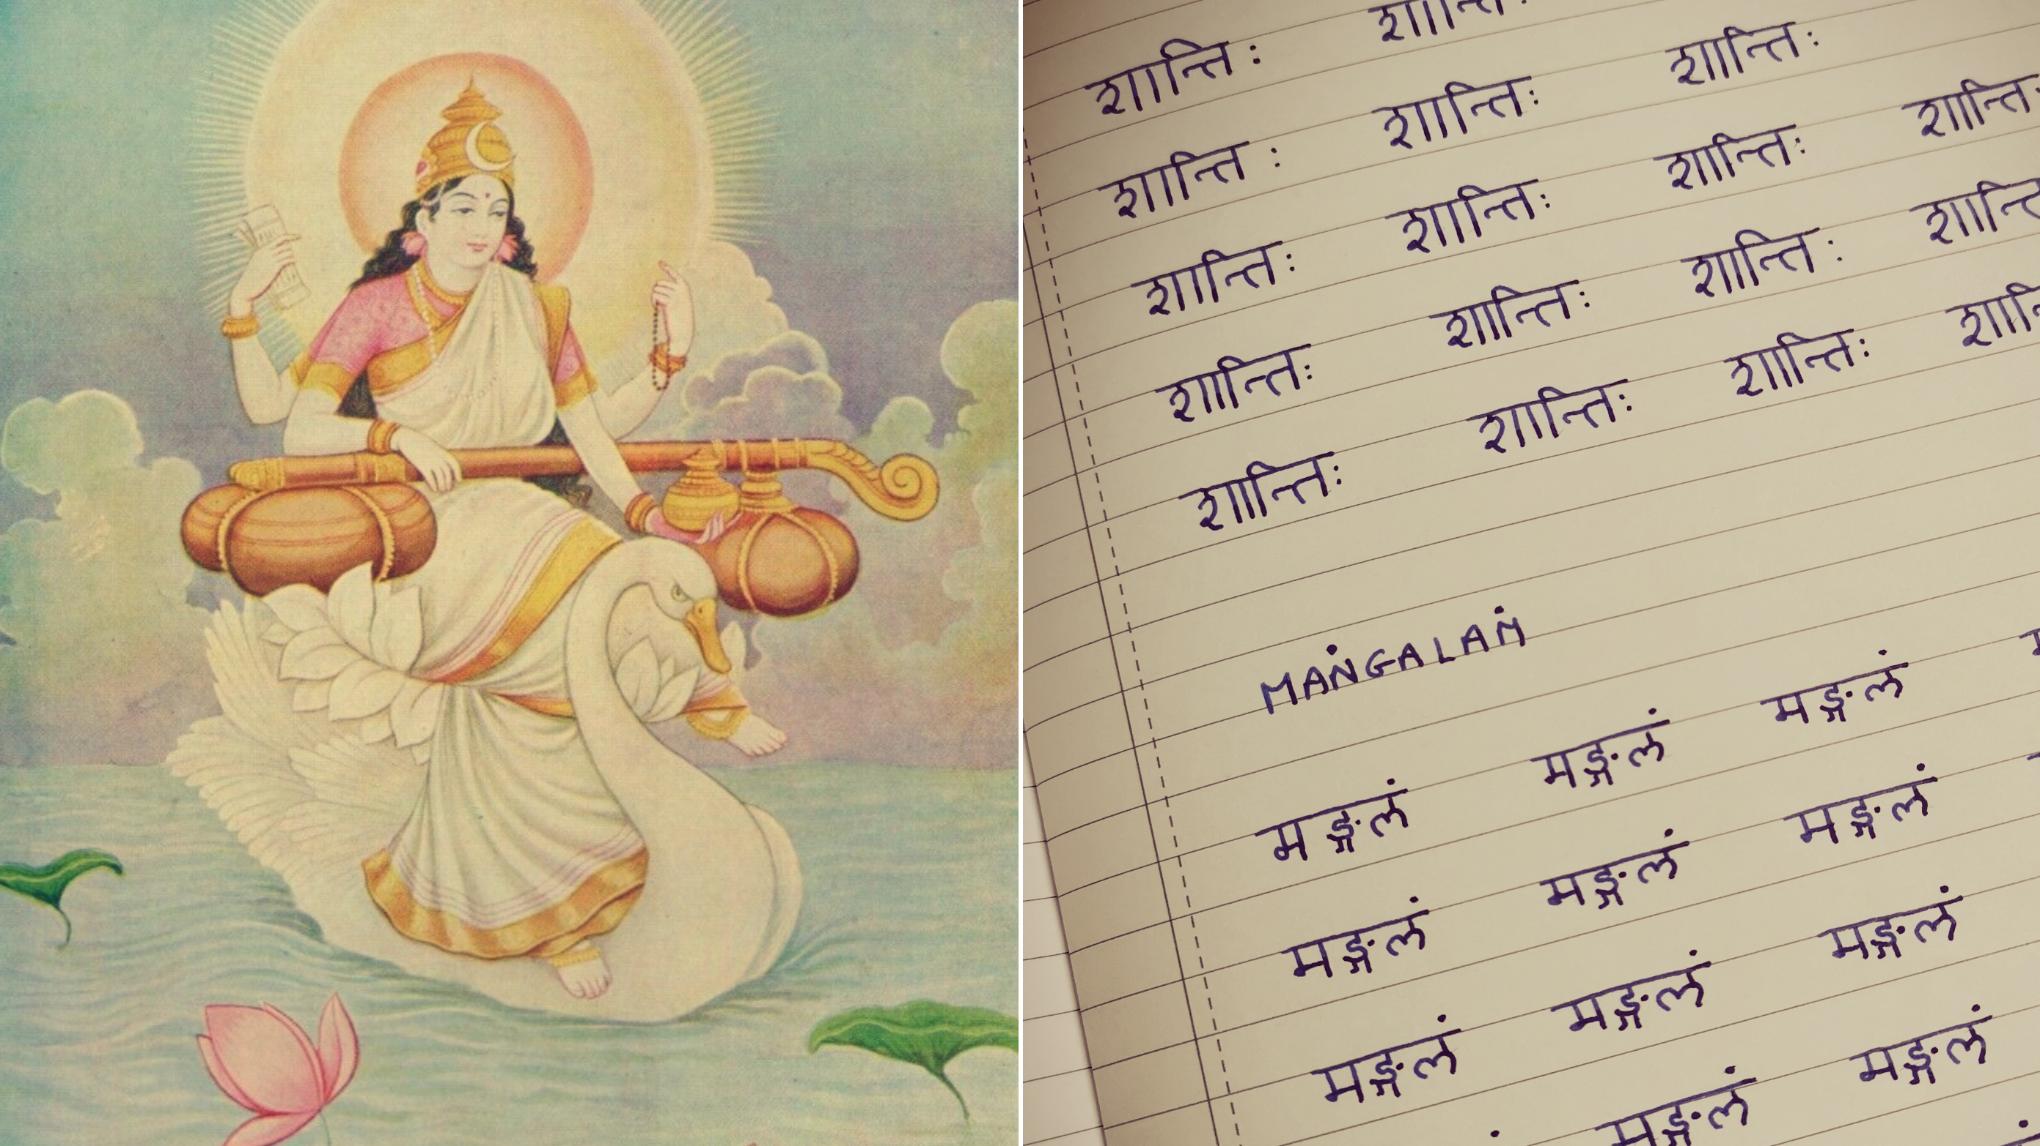 शान्तिः शान्तिः
शान्तिः शान्तिः शान्तिः
शान्तिः शान्तिः शान्तिः शान्तिः
शान्तिः शान्तिः शान्तिः शान्ति
शान्तिः शान्तिः शान्तिः
MAṄGALAṀ
मङ्गलं मङ्गलं मङ्गलं
मङ्गलं मङ्गलं मङ्गलं
मङ्गलं मङ्गलं मङ्गलं
मङ्गलं मङ्गलं